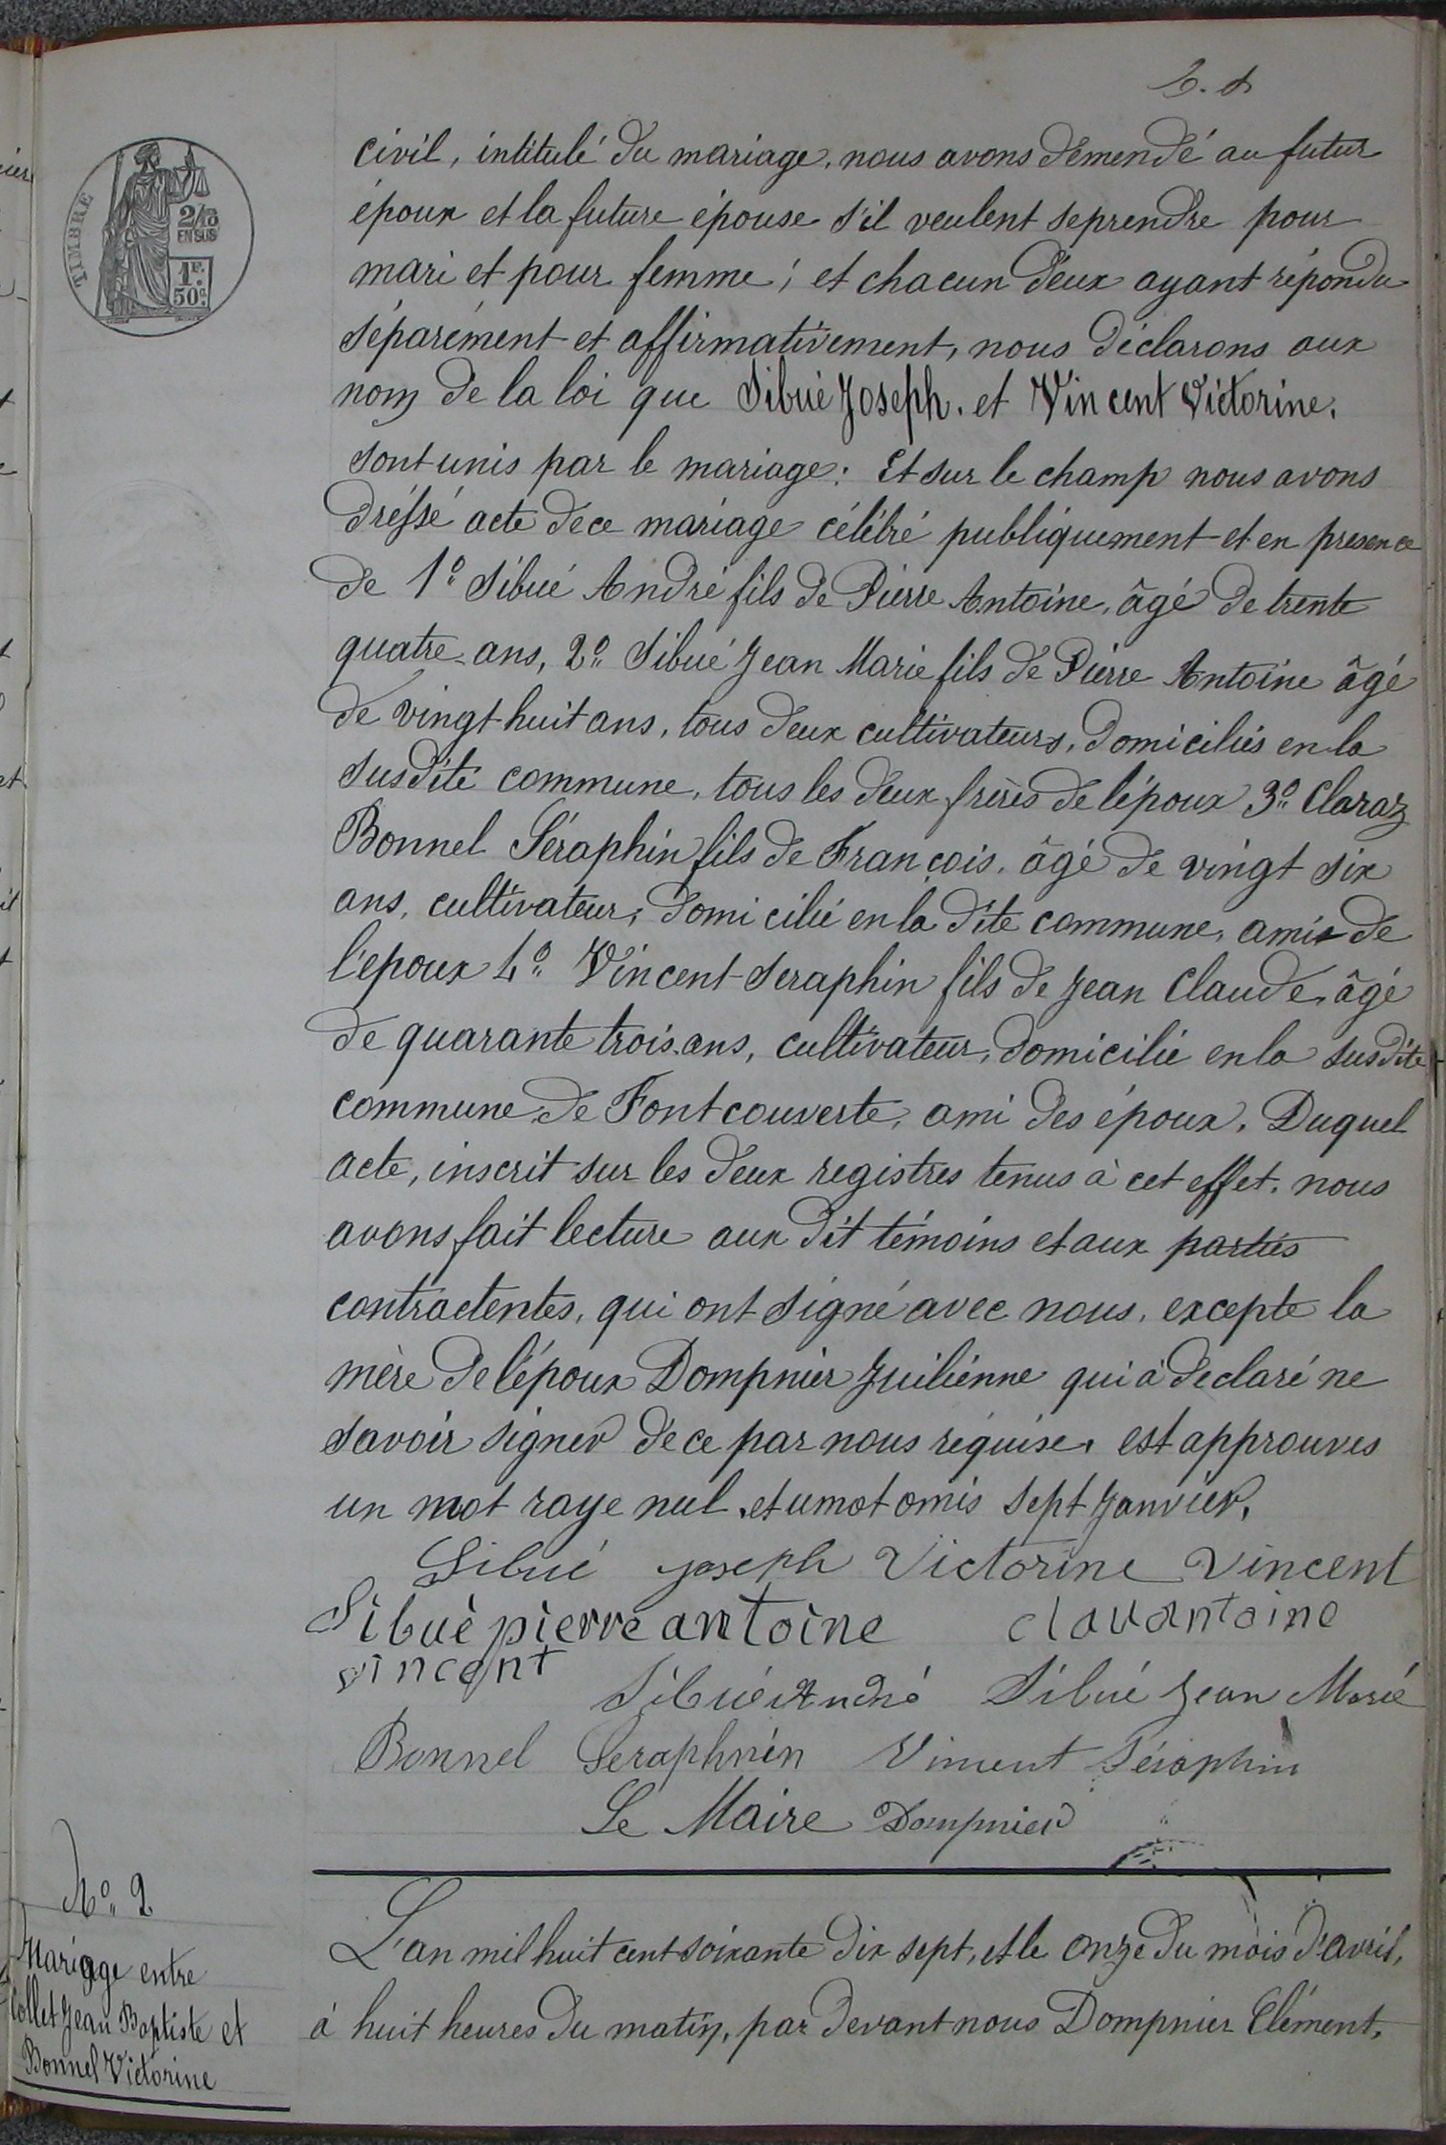 TIMBRE
2/10
EN SUS
1F.
50c
civil, intitulé du mariage, nous avons démendé au futur
époux et la future épouse s'il veulent se prendre pour
mari et pour femme; et chacun d'eux ayant répondu
séparément et affirmativement, nous déclarons aux
nom de la loi que Sibué Joseph. et Vincent Victorine.
sont unis par le mariage: Et sur le champ nous avons
dréssé acte de ce mariage célébré publiquement et en presence
de 1° Sibué André fils de Pierre Antoine, âgé de trente
quatre ans, 2° Sibué Jean Marie fils de Pierre Antoine âgé
de vingt huit ans, tous deux cultivateurs, domiciliés en la
susdite commune, tous les deux frères de l'époux 3° Claraz
Bonnel Séraphin fils de François. âgé de vingt six
ans, cultivateur, domicilié en la dite commune, ami de
l'epoux 4° Vincent Seraphin fils de Jean Claude, âgé
de quarante trois ans, cultivateur, domicilié en la susdite
commune de Fontcouverte, ami des époux. Duquel
acte, inscrit sur les deux registres tenus à cet effet. nous
avons fait lecture aux dit témoins et aux parties
contractentes, qui ont signé avec nous, excepte la
mère de l'époux Dompnier Juiliénne qui à declaré ne
savoir signer de ce par nous réquise. est approuves
un mot raye nul. et umot omis sept Janvier.
Sibué joseph Victorine Vincent
Sibuè pierre antoine
vincent
Sibué André Sibué Jean Marié
Bonnel Seraphnin Vincent Séraphin
Le Maire Dompnier
N° 2
Mariage entre
Collet Jean Baptiste et
Bonnel Victorine
L'an mil huit cent soixante dix sept, et le onze du mois d'avril,
à huit heures du matin, par devant nous Dompnier Clément,